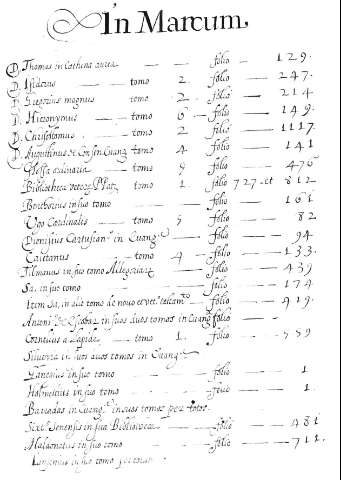 In Marcum,
D. Thomas in Cathena aurea folio 129.
D. Isidrus tomo 2. folio 247.
D. Gregorius magnus tomo 2. folio 214
D. Hieronymus tomo 6 folio 149.
D. Chrisostomus tomo 2 folio 1117.
D. Augustinus de Consen Euang tomo 4 folio 141
Glossa ordinaria tomo 9 folio 476
Bibliotheca Patr tomo 1 folio 727. et 812
in suo tomo folio 161
Ugo Cardinalis tomo 5 folio 82
Dionisius Cartusian in Euang folio 94
Caietanus tomo 4 folio 133.
in suo tomo folio 439
Sa, in suo tomo folio 174
Item Sa, in alio tomo de nouo et vet. testam folio 419.
Antoni de Escobar in suos duos tomos in Euang folio
Cornelius a Lapide tomo 1. folio 559
Silueira in suos tomos in Euang
in suo tomo folio 1
in suo tomo folio 1
Barradas in Euang in suos tomos per totos
Sixt Senensis in sua Biblioteca folio 481
Maldonatus in suo tomo folio 711.
in suo tomo